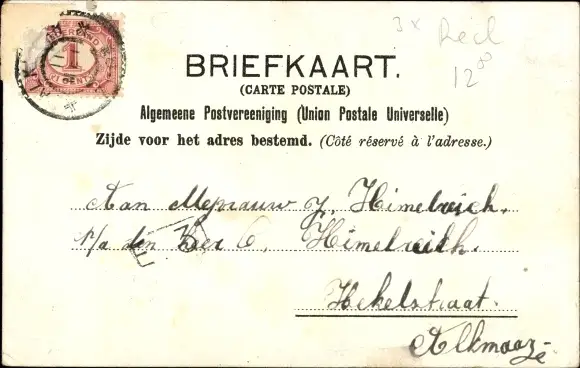 3x Recl
12⁰⁰
1
BRIEFKAART.
(CARTE POSTALE)
Algemeene Postvereeniging (Union Postale Universelle)
Zijde voor het adres bestemd. (Côté réservé à l'adresse.)
Aan Mejnauw J. Himelreich.
p/a den heer C. Himelreich.
Hekelstraat.
Alkmaar